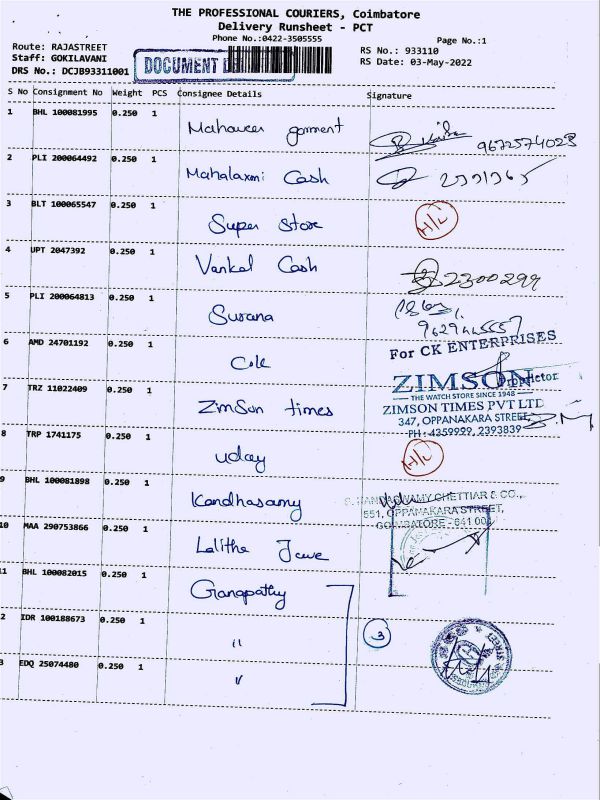 THE PROFESSIONAL COURIERS, Coimbatore
Delivery Runsheet - PCT
Phone No.:0422-3505555
Page No.:1
Route: RAJASTREET
RS No.: 933110
Staff: GOKILAVANI
RS Date: 03-May-2022
DRS No.: DCJB93311001
DOCUMENT
S No Consignment No Weight PCS Consignee Details Signature
1 BHL 100081995 0.250 1 Mahaveer garment 9672574028
2 PLI 200064492 0.250 1 Mahalaxmi Cash 2391365
3 BLT 100065547 0.250 1 Super Store H/L
4 UPT 2047392 0.250 1 Vankal Cash 2300299
5 PLI 200064813 0.250 1 Susana
6 AMD 24701192 0.250 1 Cole
For CK ENTERPRISES
Proprietor
7 TRZ 11022409 0.250 1 ZimSon times
ZIMSON
THE WATCH STORE SINCE 1948
ZIMSON TIMES PVT LTD
347, OPPANAKARA STREET
PH : 4359929, 2393839
8 TRP 1741175 0.250 1 uday H/L
9 BHL 100081898 0.250 1 Kandhasamy
S. KANDASWAMY CHETTIAR & CO.,
551, OPPANAKARA STREET,
COIMBATORE - 641 001
10 MAA 290753866 0.250 1 Lalitha Jewe
11 BHL 100082015 0.250 1 Ganapathy
2 IDR 100188673 0.250 1 " 3
3 EDQ 25074480 0.250 1 "